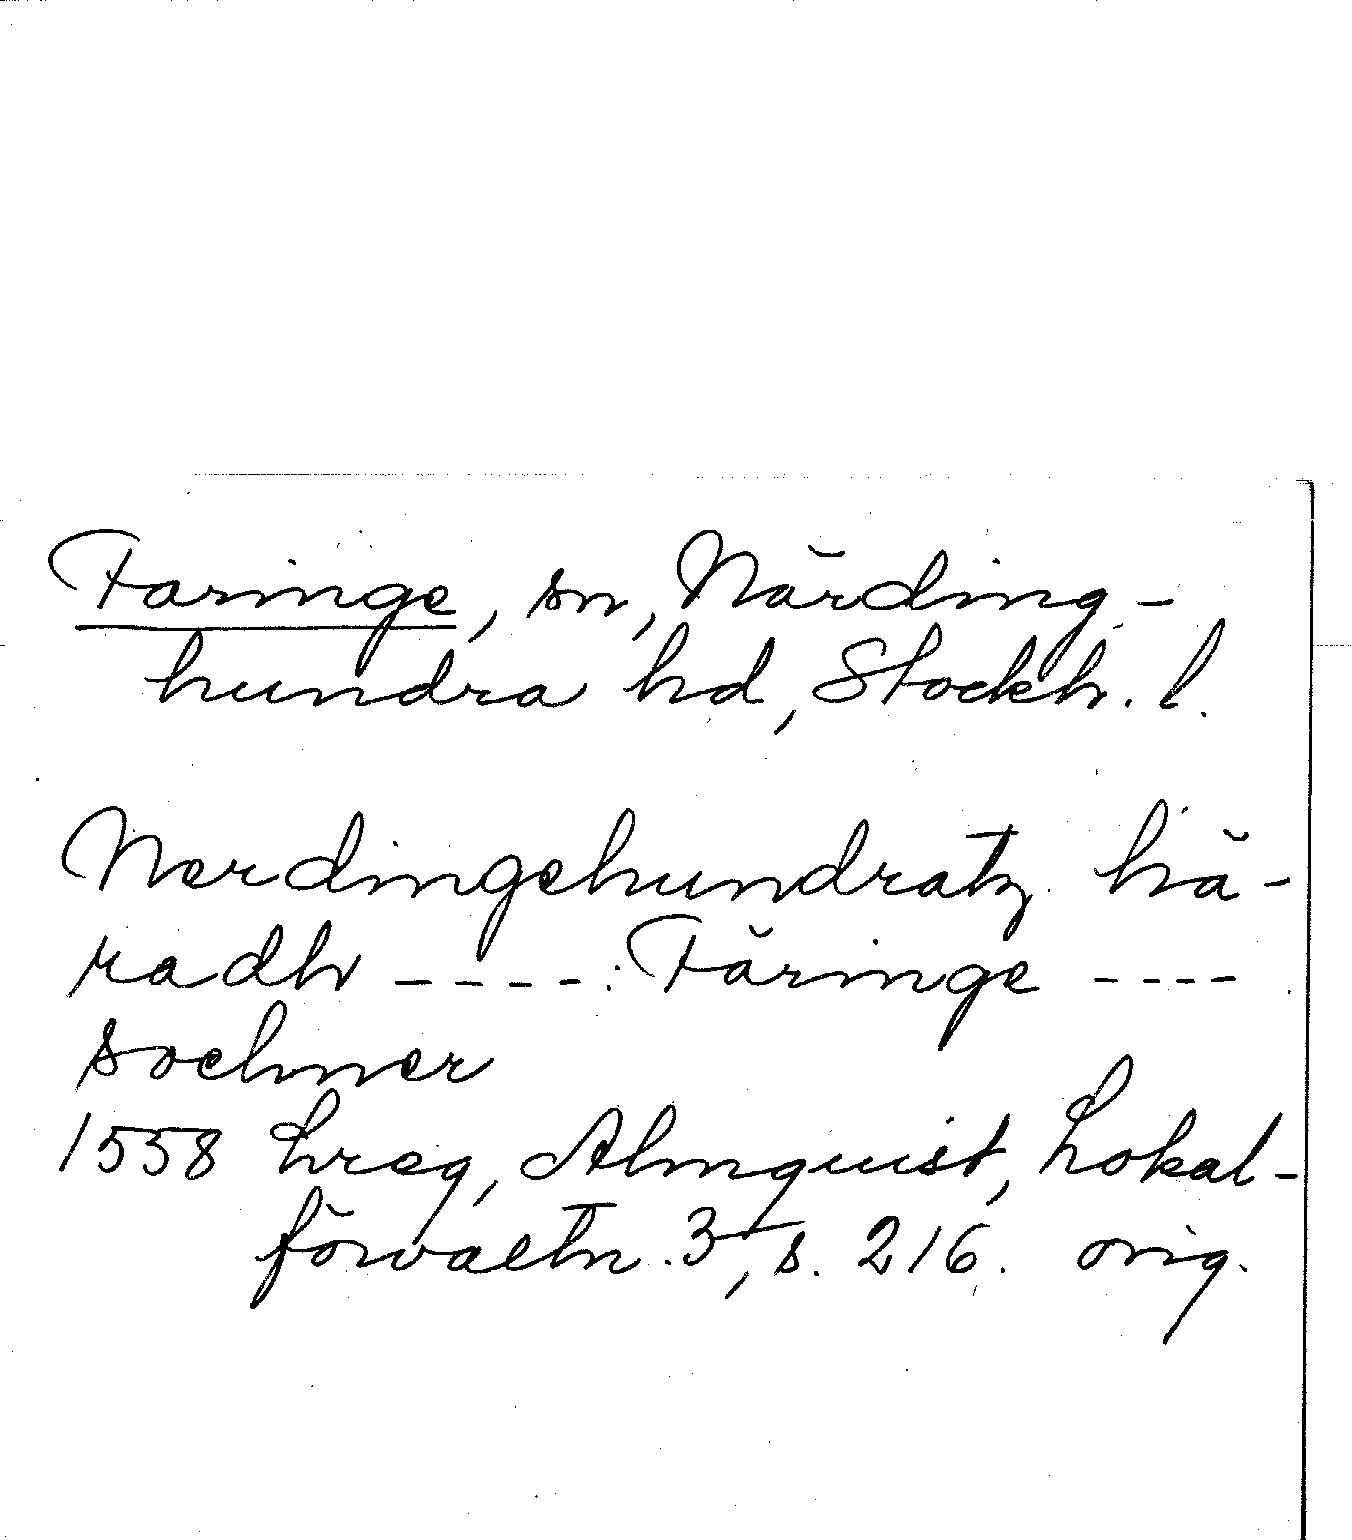 Faringe, sn, Närding-
hundra hd, Stockh. l.
Nerdingehundratz hä-
radh ----: Färinge ----
sochner
1558 Lreg, Almquist, Lokal-
förvaltn. 3, s. 216. orig.